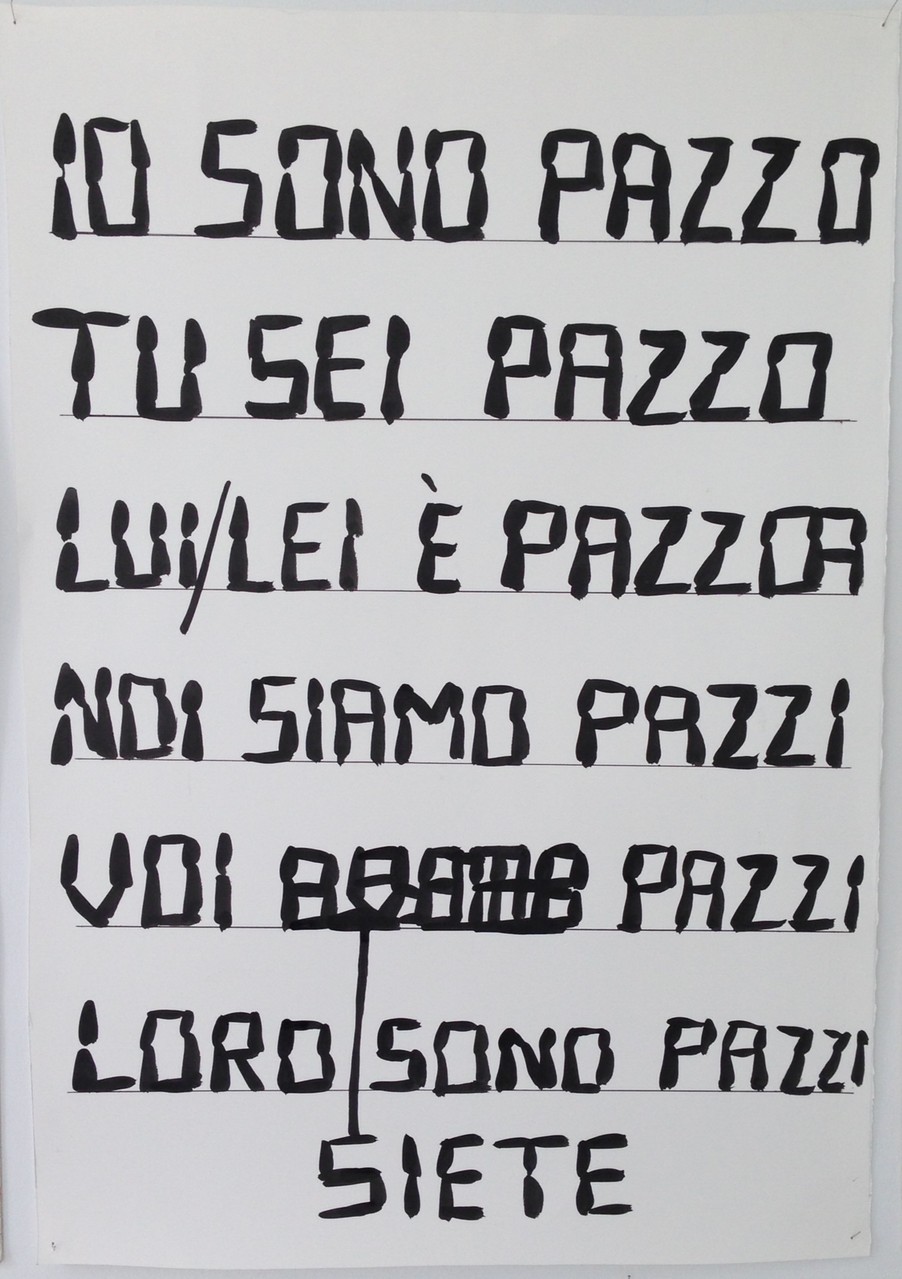 IO SONO PAZZO
TU SEI PAZZO
LUI/LEI È PAZZOA
NOI SIAMO PAZZI
VOI PAZZI
LORO SONO PAZZI
SIETE